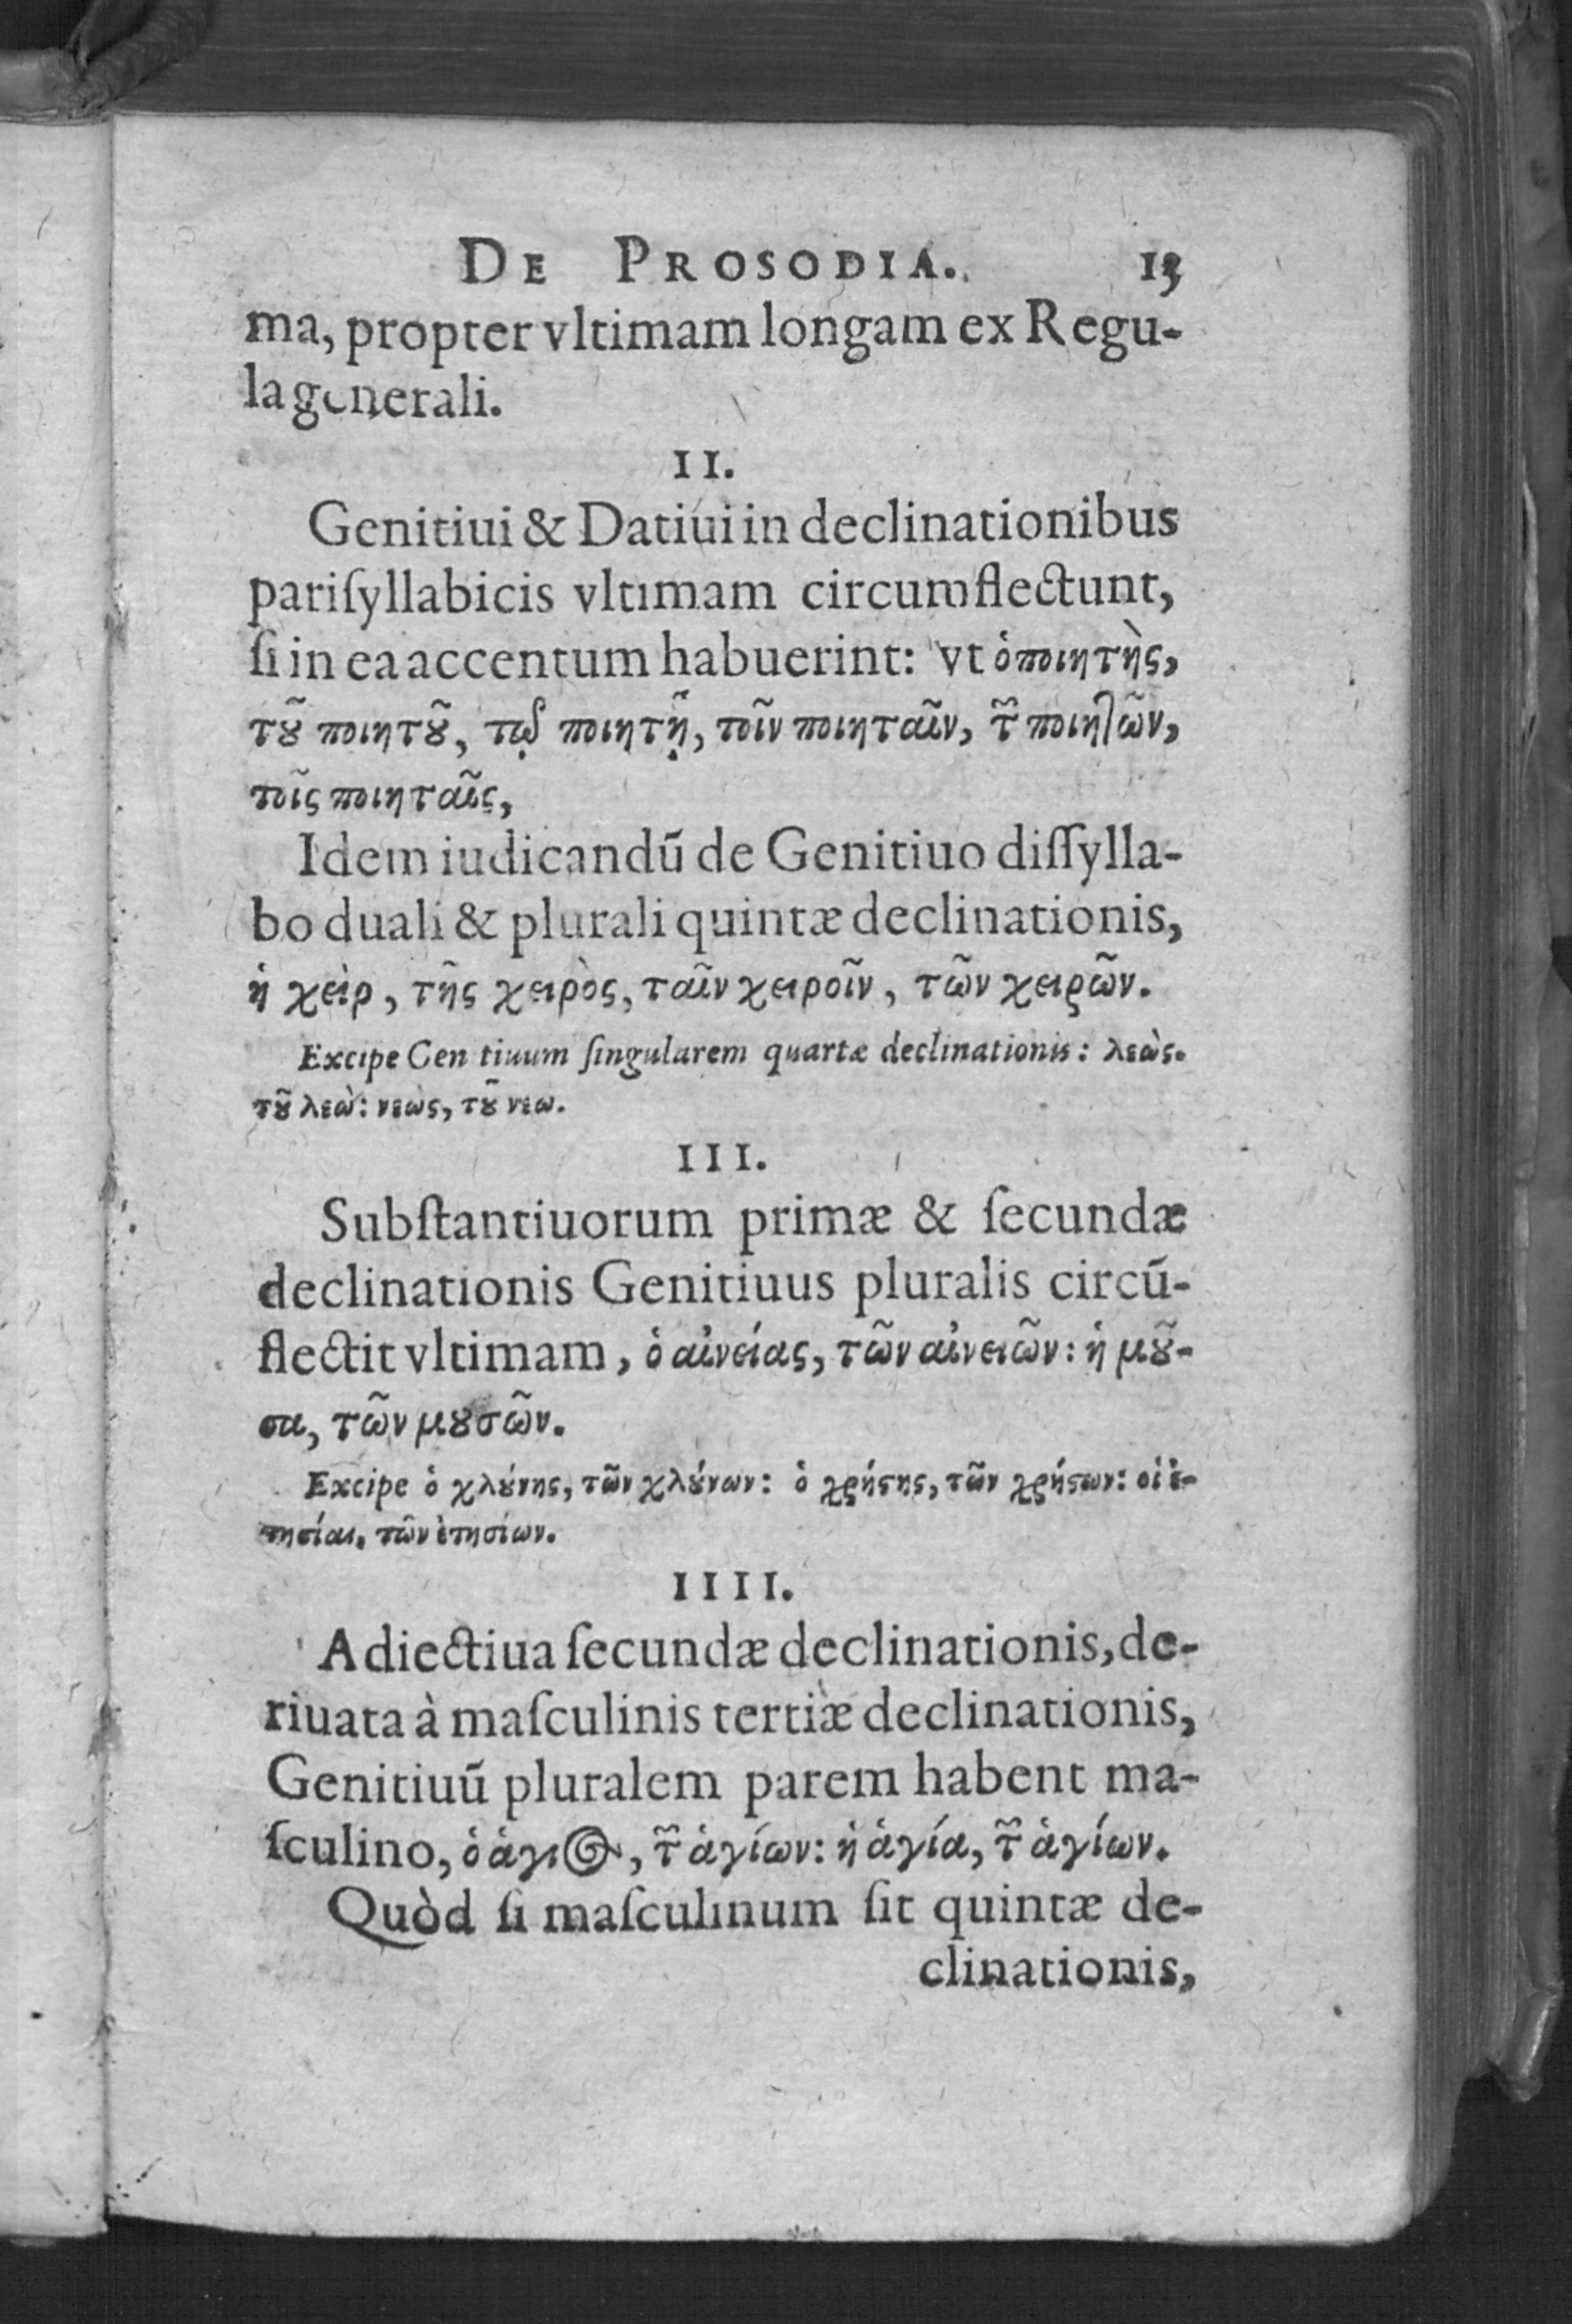 DE PROSODIA. 13
ma, propter vltimam longam ex Regu-
la generali.
II.
Genitiui & Datiui in declinationibus
pariſyllabicis vltimam circumflectunt,
ſi in ea accentum habuerint: vt ὁ ποιητὴς,
τȣ͂ ποιητȣ͂, τῷ ποιητῇ, τοῖν ποιηταῖν, τ῀ ποιητῶν,
τοῖς ποιηταῖς,
Idem iudicandū de Genitiuo diſſylla-
bo duali & plurali quintæ declinationis,
ἡ χεὶρ, τῆς χειρὸς, ταῖν χειροῖν, τῶν χειρῶν.
Excipe Gen tiuum ſingularem quartæ declinationis: λεὼς.
τȣ͂ λεὼ: νεὼς, τȣ͂ νεω.
III.
Subſtantiuorum primæ & ſecundæ
declinationis Genitiuus pluralis circū-
flectit vltimam, ὁ αἰνείας, τῶν αἰνειῶν: ἡ μȣ͂-
σα, τῶν μȣσῶν.
Excipe ὁ χλȣ́νης, τῶν χλȣ́νων: ὁ χρήϛης, τῶν χρήϛων: οἱ ἐ-
τησίαι, τῶν ἐτησίων.
IIII.
Adiectiua ſecundæ declinationis, de-
riuata à maſculinis tertiæ declinationis,
Genitiuū pluralem parem habent ma-
ſculino, ὁ ἅγιος, τ῀ ἁγίων: ἡ ἁγία, τ῀ ἁγίων.
Quòd ſi maſculinum ſit quintæ de-
clinationis,